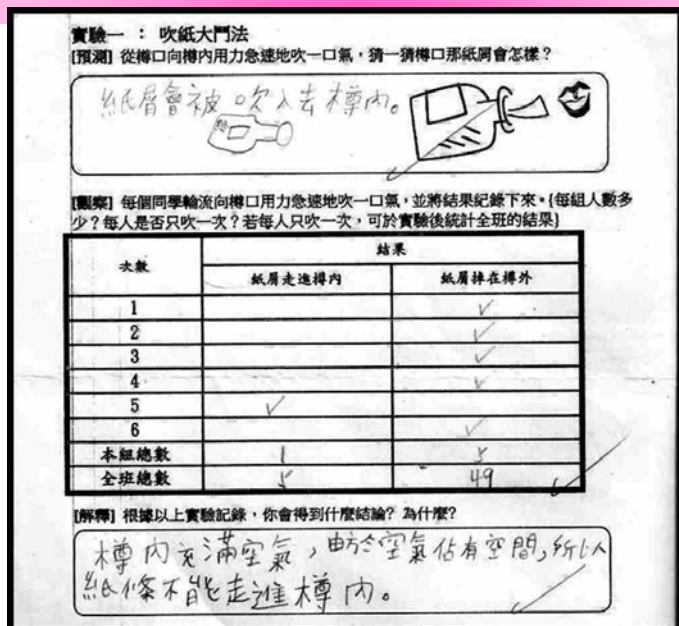 實驗一 : 吹紙大鬥法
[預測] 從樽口向樽內用力急速地吹一口氣，猜一猜樽口那紙屑會怎樣？
紙屑會被吹入去樽內。
[觀察] 每個同學輪流向樽口用力急速地吹一口氣，並將結果紀錄下來。{每組人數多
少？每人是否只吹一次？若每人只吹一次，可於實驗後統計全班的結果}
次數 結果
紙屑走進樽內 紙屑掉在樽外
1 ✓
2 ✓
3 ✓
4 ✓
5 ✓
6 ✓
本組總數 1 5
全班總數 5 49
[解釋] 根據以上實驗記錄，你會得到什麼結論? 為什麼?
樽內充滿空氣，由於空氣佔有空間，所以
紙條不能走進樽內。